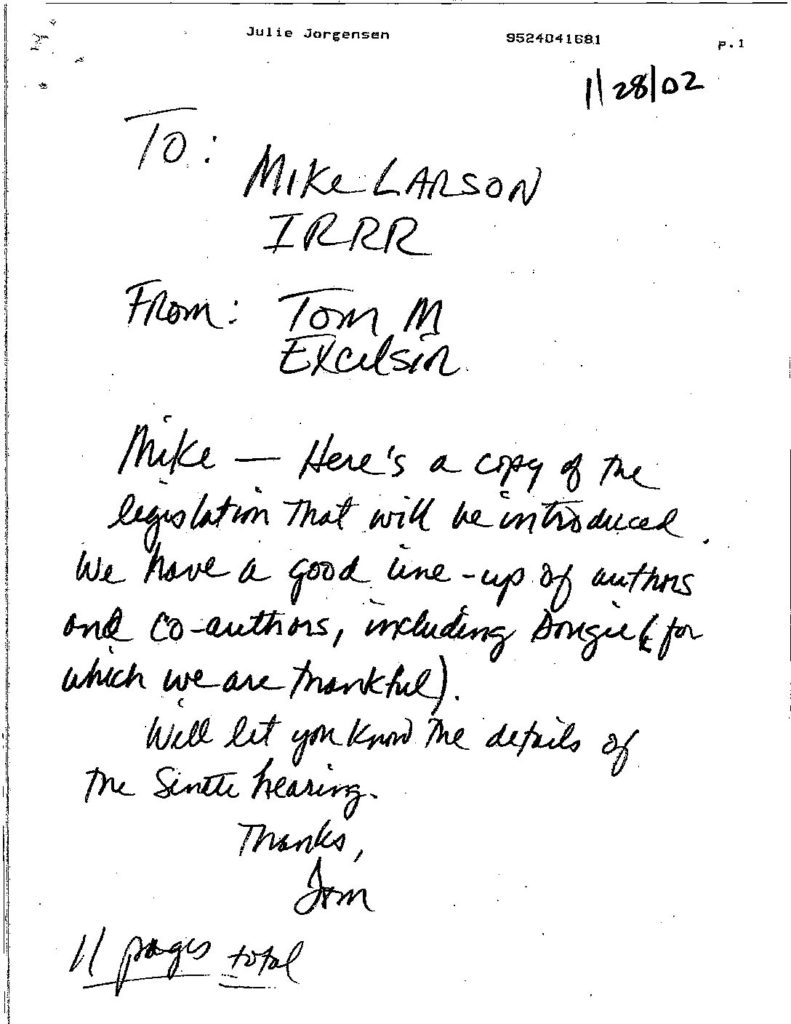 Julie Jorgensen 9524041681 p.1
1/28/02
To:
Mike Larson
IRRR
From: Tom M
Excelsior
Mike — Here's a copy of the
legislation that will be introduced.
We have a good line-up of authors
and co-authors, including (for
which we are thankful).
Will let you know the details of
the Senate hearing.
Thanks,
Tom
11 pages total